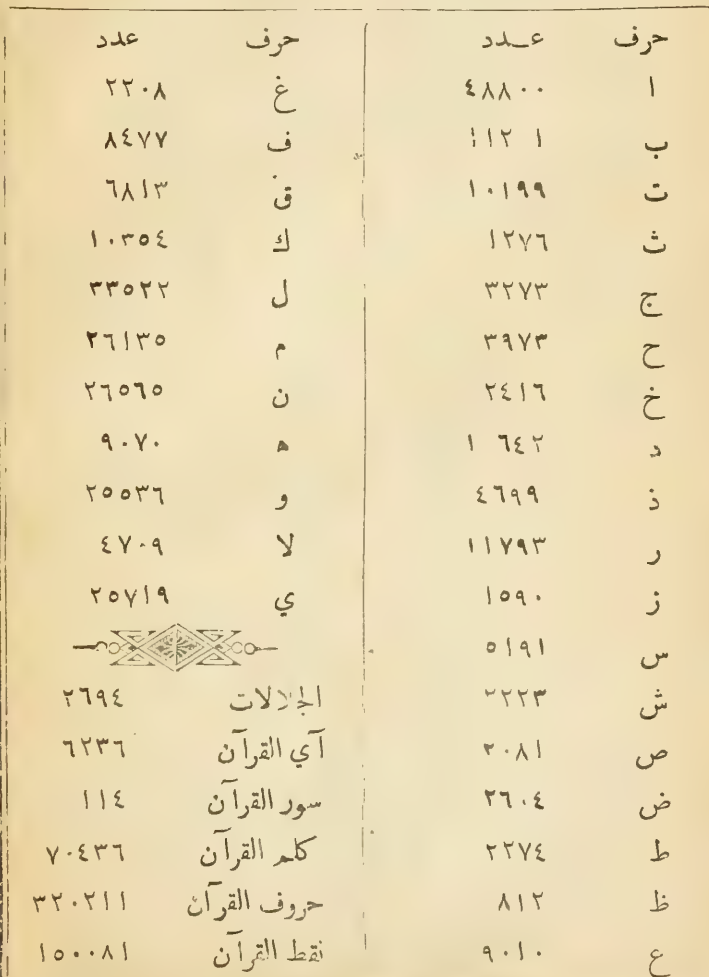 حرف عـدد
ا ٤٨٨٠٠
ب
ت ١٠١٩٩
ث ١٢٧٦
ج ٣٢٧٣
ح ٣٩٧٣
خ ٢٤١٦
د ١ ٦٤٢
ذ ٤٦٩٩
ر ١١٧٩٣
ز ١٥٩٠
س ٥١٩١
ش
ص ٢٠٨١
ض ٢٦٠٤
ط ٢٢٧٤
ظ ٨١٢
ع ٩٠١٠
حرف عدد
غ ٢٢٠٨
ف ٨٤٧٧
ق ٦٨١٣
ك ١٠٣٥٤
ل ٣٣٥٢٢
م ٢٦١٣٥
ن ٢٦٥٦٥
ه ٩٠٧٠
و ٢٥٥٣٦
لا ٤٧٠٩
ي ٢٥٧١٩
الجلالات ٢٦٩٤
آي القرآن ٦٢٣٦
سور القرآن ١١٤
كلم القرآن ٧٠٤٣٦
حروف القرآن ٣٢٠٢١١
نقط القرآن ١٥٠٠٨١